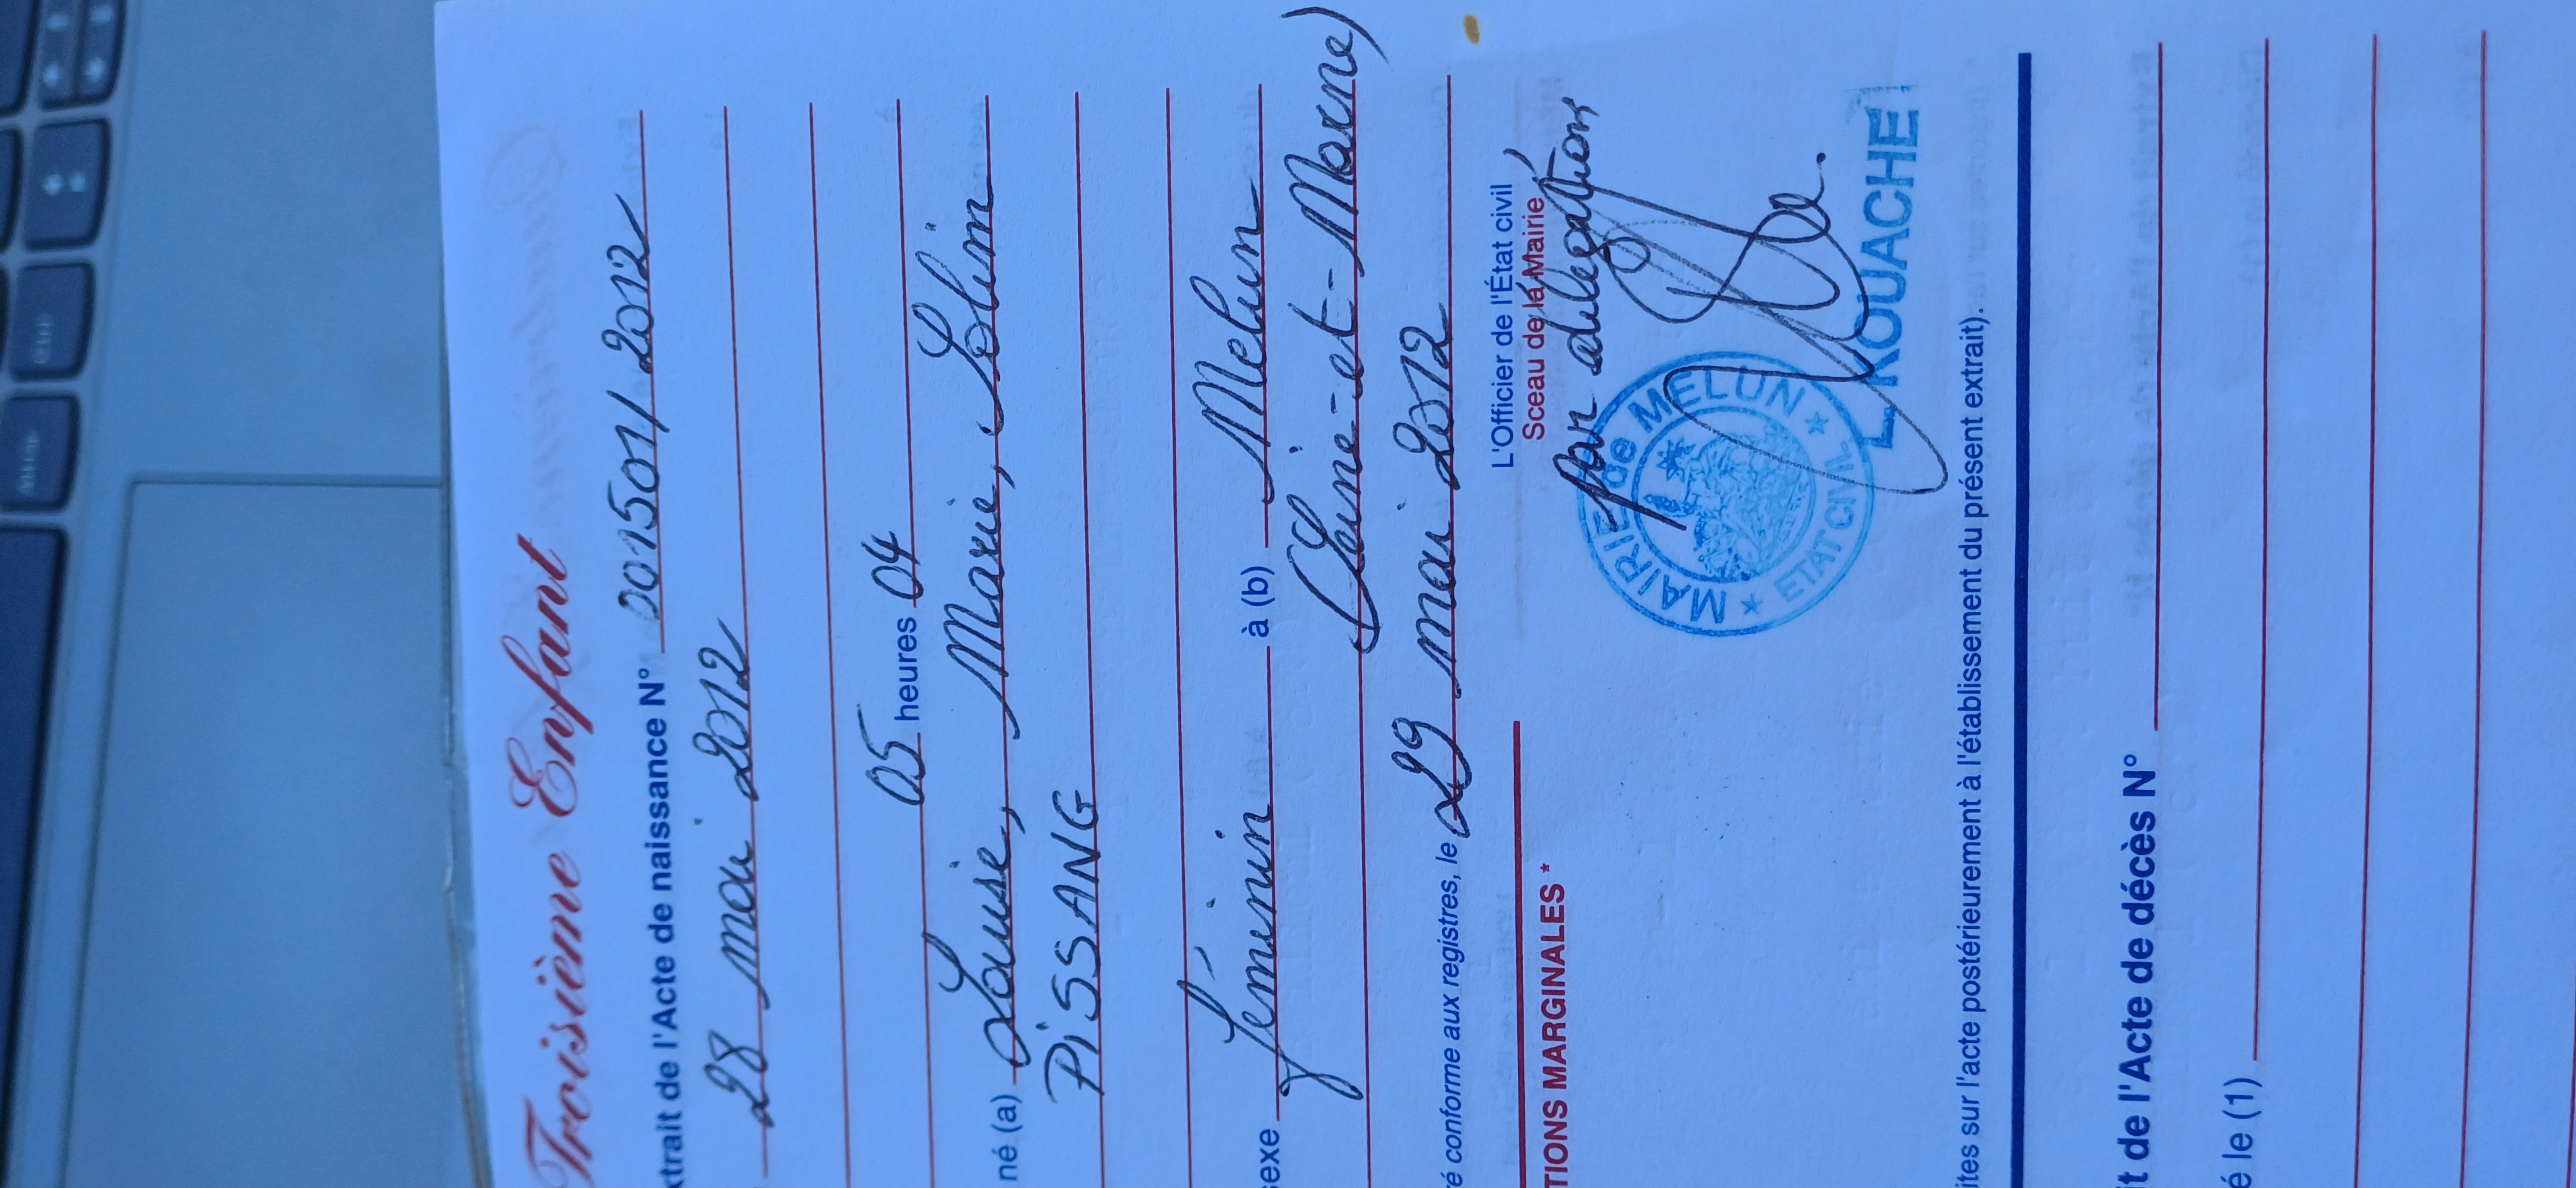 Troisième Enfant
xtrait de l'Acte de naissance N° 001501/2012
28 mai 2012
05 heures 04
né (a) Louise, Marie, Solim
PISSANG
sexe féminin à (b) Melun
(Seine-et-Marne)
ré conforme aux registres, le 29 mai 2012
L'Officier de l'État civil
Sceau de la Mairie
par délégation
MAIRIE de MELUN
ETAT CIVIL
L. KOUACHE
TIONS MARGINALES *
ites sur l'acte postérieurement à l'établissement du présent extrait).
t de l'Acte de décès N°
é le (1)